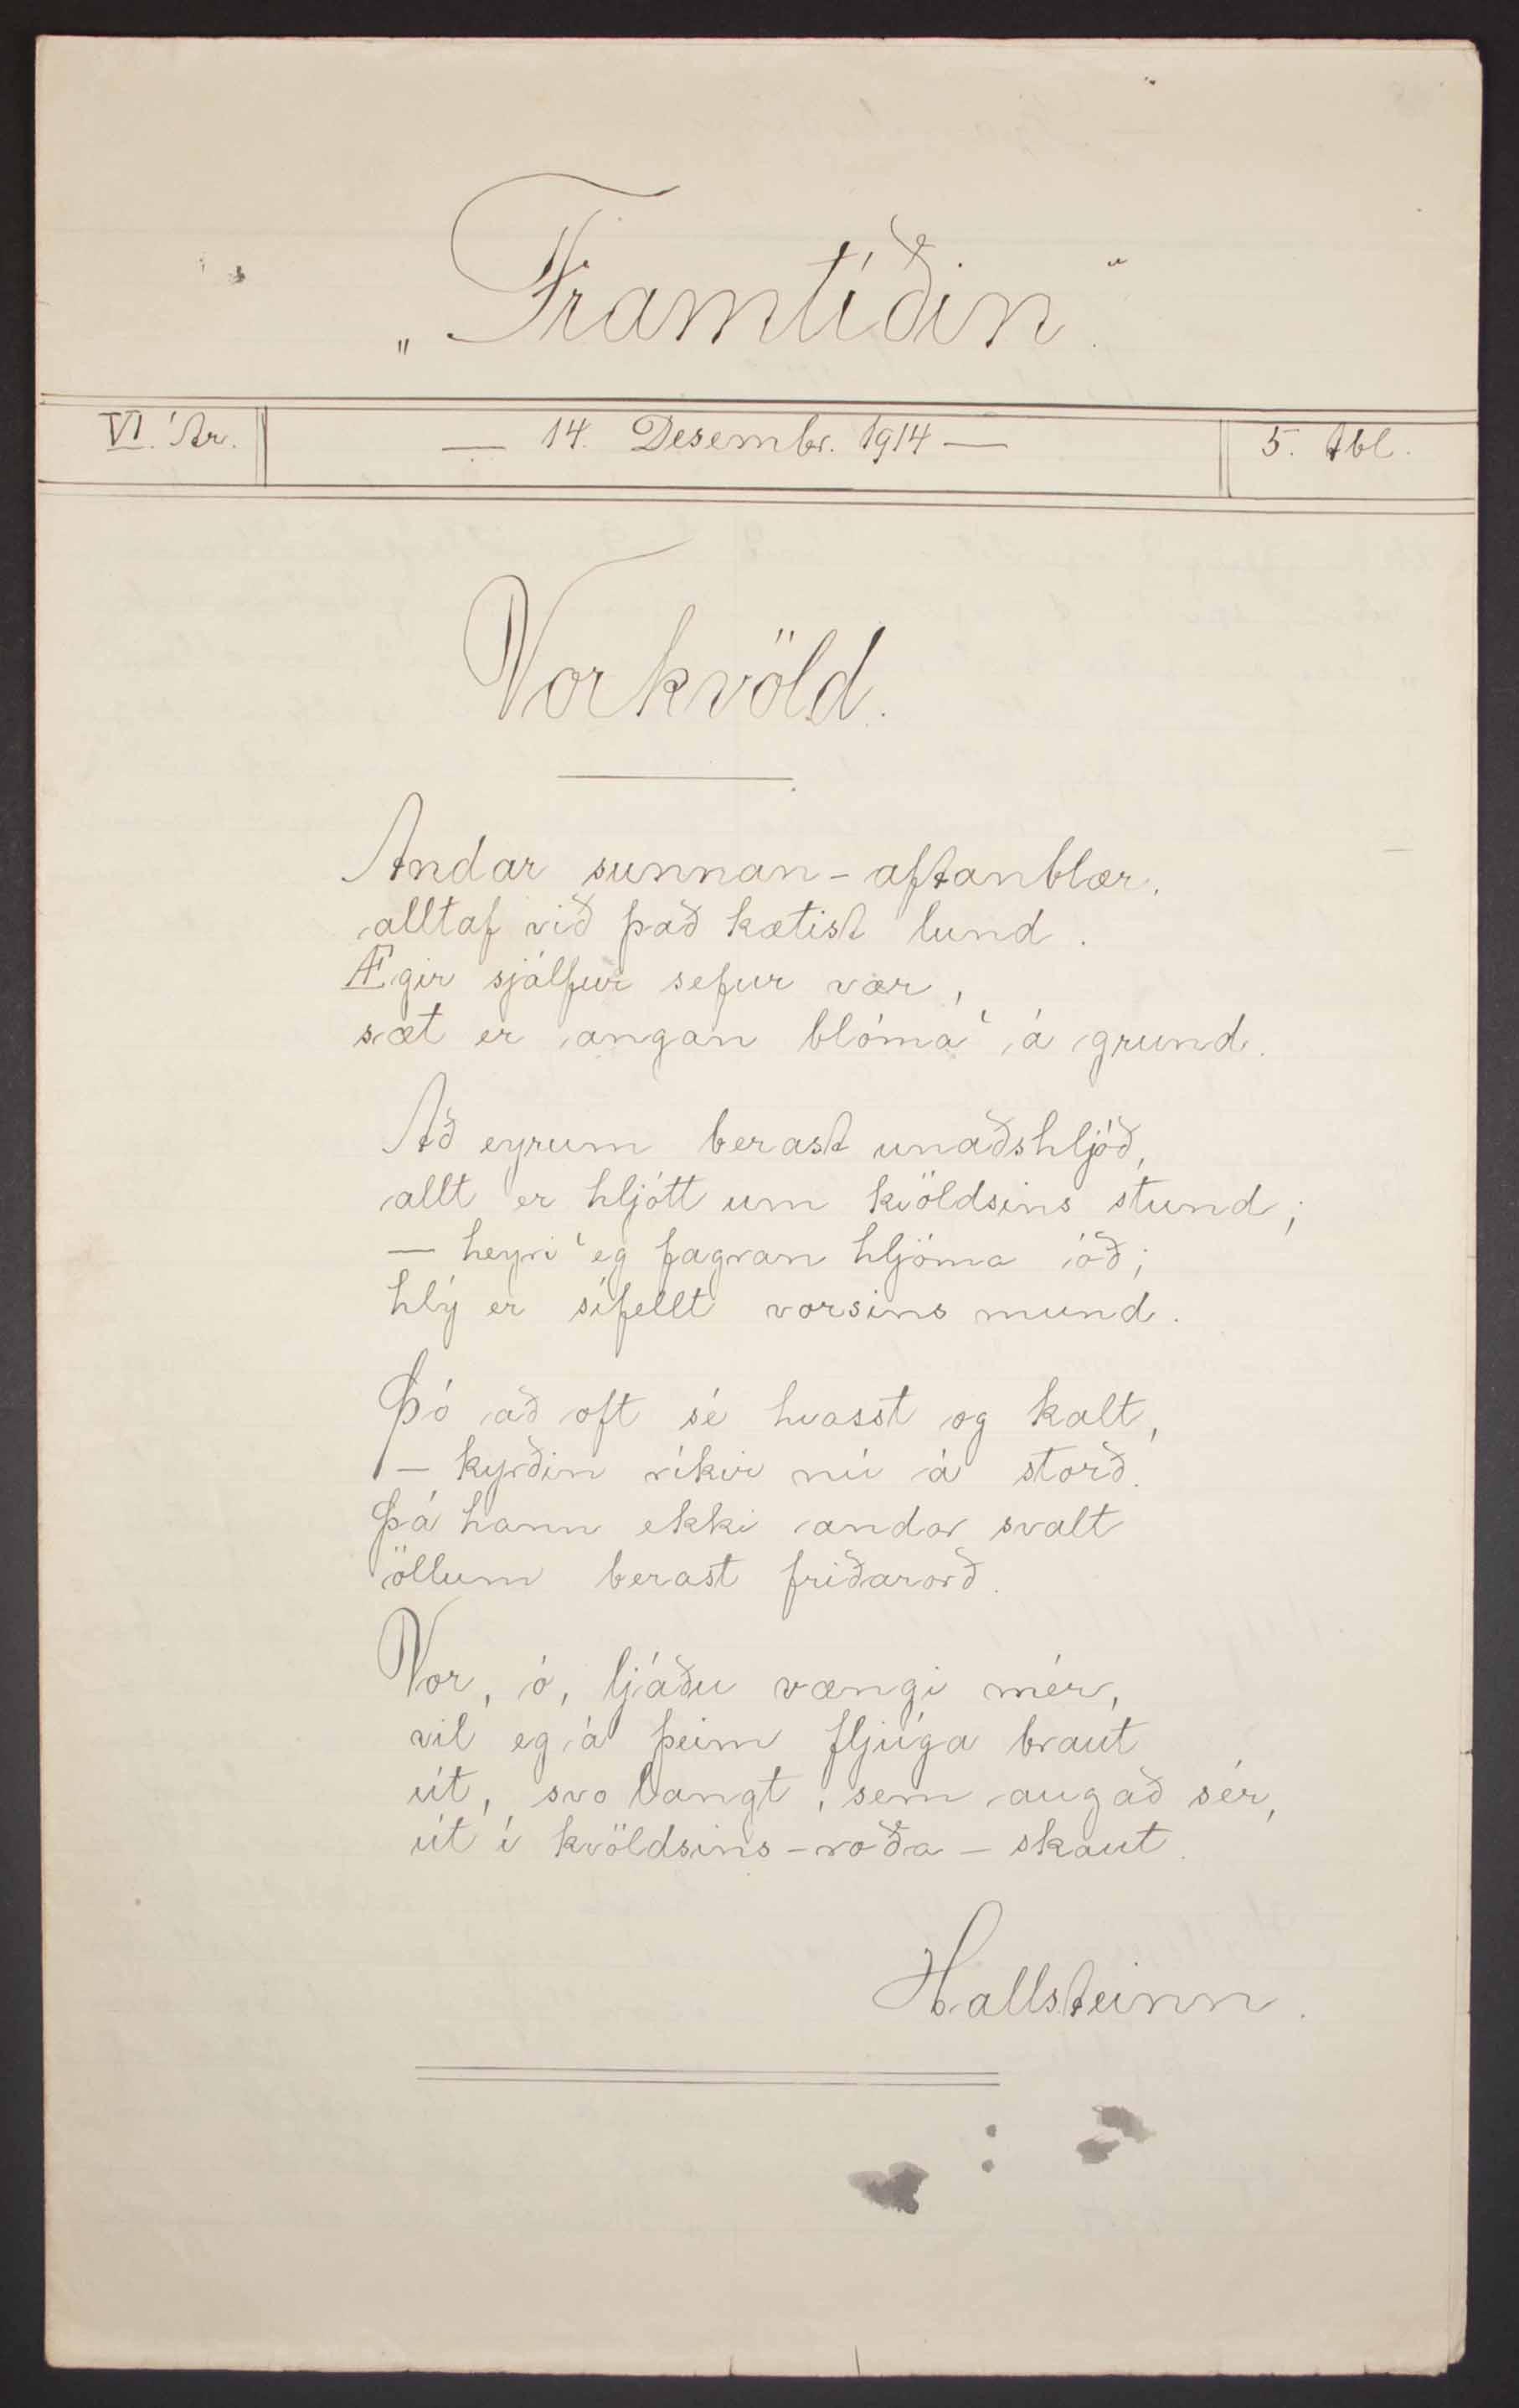 „Framtíðin“.
VI. Ár.
— 14. Desembr. 1914 —
5. tbl.
Vorkvöld.
Andar sunnan-aftanblær,
alltaf við það kætist lund.
Ægir sjálfur sefur vær,
sæt er angan blóma' á grund.
Að eyrum berast unaðshljóð,
allt er hljótt um kvöldsins stund;
— heyri' eg fagran hljóma óð;
hlý er sífellt vorsins mund.
Þó að oft sé hvasst og kalt,
— kyrðin ríkir nú á storð.
Þá hann ekki andar svalt
öllum berast friðarorð.
Vor, ó, ljáðu vængi mér,
vil eg á þeim fljúga braut
út, svo langt, sem augað sér,
út í kvöldsins-roða-skaut.
Hallsteinn.